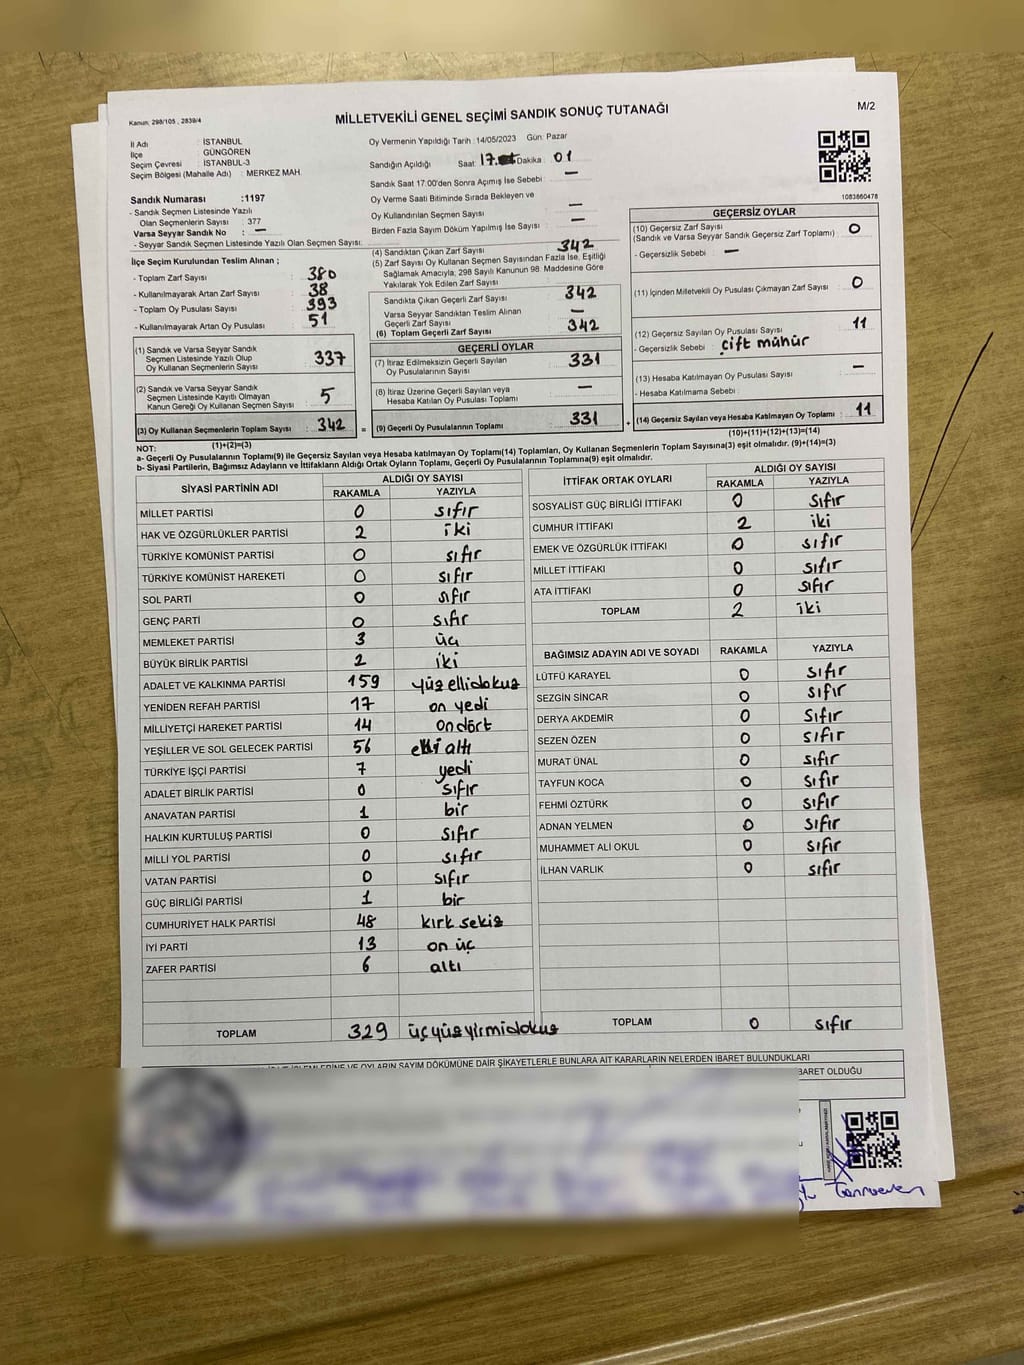 Kanun; 298/105 , 2839/4
MİLLETVEKİLİ GENEL SEÇİMİ SANDIK SONUÇ TUTANAĞI
M/2
İl Adı : İSTANBUL
İlçe : GÜNGÖREN
Seçim Çevresi : İSTANBUL-3
Seçim Bölgesi (Mahalle Adı) : MERKEZ MAH.
Oy Vermenin Yapıldığı Tarih : 14/05/2023 Gün: Pazar
Sandığın Açıldığı Saat: 17. Dakika : 01
Sandık Saat 17:00'den Sonra Açımış İse Sebebi : —
Oy Verme Saati Bitiminde Sırada Bekleyen ve
Oy Kullandırılan Seçmen Sayısı —
Birden Fazla Sayım Döküm Yapılmış İse Sayısı : —
1083860478
Sandık Numarası :1197
- Sandık Seçmen Listesinde Yazılı
Olan Seçmenlerin Sayısı : 377
Varsa Seyyar Sandık No : —
- Seyyar Sandık Seçmen Listesinde Yazılı Olan Seçmen Sayısı:
İlçe Seçim Kurulundan Teslim Alınan ;
- Toplam Zarf Sayısı : 380
- Kullanılmayarak Artan Zarf Sayısı : 38
- Toplam Oy Pusulası Sayısı : 393
- Kullanılmayarak Artan Oy Pusulası : 51
(1) Sandık ve Varsa Seyyar Sandık
Seçmen Listesinde Yazılı Olup
Oy Kullanan Seçmenlerin Sayısı : 337
(2) Sandık ve Varsa Seyyar Sandık
Seçmen Listesinde Kayıtlı Olmayan
Kanun Gereği Oy Kullanan Seçmen Sayısı : 5
(3) Oy Kullanan Seçmenlerin Toplam Sayısı : 342
(1)+(2)=(3)
(4) Sandıktan Çıkan Zarf Sayısı : 342
(5) Zarf Sayısı Oy Kullanan Seçmen Sayısından Fazla İse, Eşitliği
Sağlamak Amacıyla; 298 Sayılı Kanunun 98. Maddesine Göre
Yakılarak Yok Edilen Zarf Sayısı :
Sandıkta Çıkan Geçerli Zarf Sayısı : 342
Varsa Seyyar Sandıktan Teslim Alınan
Geçerli Zarf Sayısı : —
(6) Toplam Geçerli Zarf Sayısı : 342
GEÇERLİ OYLAR
(7) İtiraz Edilmeksizin Geçerli Sayılan
Oy Pusulalarının Sayısı : 331
(8) İtiraz Üzerine Geçerli Sayılan veya
Hesaba Katılan Oy Pusulası Toplamı : —
= (9) Geçerli Oy Pusulalarının Toplamı : 331
GEÇERSİZ OYLAR
(10) Geçersiz Zarf Sayısı : 0
(Sandık ve Varsa Seyyar Sandık Geçersiz Zarf Toplamı)
- Geçersizlik Sebebi : —
(11) İçinden Milletvekili Oy Pusulası Çıkmayan Zarf Sayısı : 0
(12) Geçersiz Sayılan Oy Pusulası Sayısı : 11
- Geçersizlik Sebebi : çift mühür
(13) Hesaba Katılmayan Oy Pusulası Sayısı : —
- Hesaba Katılmama Sebebi :
+ (14) Geçersiz Sayılan veya Hesaba Katılmayan Oy Toplamı : 11
(10)+(11)+(12)+(13)=(14)
NOT:
a- Geçerli Oy Pusulalarının Toplamı(9) ile Geçersiz Sayılan veya Hesaba katılmayan Oy Toplamı(14) Toplamları, Oy Kullanan Seçmenlerin Toplam Sayısına(3) eşit olmalıdır. (9)+(14)=(3)
b- Siyasi Partilerin, Bağımsız Adayların ve İttifakların Aldığı Ortak Oyların Toplamı, Geçerli Oy Pusulalarının Toplamına(9) eşit olmalıdır.
SİYASİ PARTİNİN ADI ALDIĞI OY SAYISI
RAKAMLA YAZIYLA
MİLLET PARTİSİ 0 sıfır
HAK VE ÖZGÜRLÜKLER PARTİSİ 2 iki
TÜRKİYE KOMÜNİST PARTİSİ 0 sıfır
TÜRKİYE KOMÜNİST HAREKETİ 0 sıfır
SOL PARTİ 0 sıfır
GENÇ PARTİ 0 sıfır
MEMLEKET PARTİSİ 3 üç
BÜYÜK BİRLİK PARTİSİ 2 iki
ADALET VE KALKINMA PARTİSİ 159 yüzellidokuz
YENİDEN REFAH PARTİSİ 17 on yedi
MİLLİYETÇİ HAREKET PARTİSİ 14 ondört
YEŞİLLER VE SOL GELECEK PARTİSİ 56 elli altı
TÜRKİYE İŞÇİ PARTİSİ 7 yedi
ADALET BİRLİK PARTİSİ 0 sıfır
ANAVATAN PARTİSİ 1 bir
HALKIN KURTULUŞ PARTİSİ 0 sıfır
MİLLİ YOL PARTİSİ 0 sıfır
VATAN PARTİSİ 0 sıfır
GÜÇ BİRLİĞİ PARTİSİ 1 bir
CUMHURİYET HALK PARTİSİ 48 kırk sekiz
İYİ PARTİ 13 on üç
ZAFER PARTİSİ 6 altı
TOPLAM 329 üçyüzyirmidokuz
İTTİFAK ORTAK OYLARI ALDIĞI OY SAYISI
RAKAMLA YAZIYLA
SOSYALİST GÜÇ BİRLİĞİ İTTİFAKI 0 sıfır
CUMHUR İTTİFAKI 2 iki
EMEK VE ÖZGÜRLÜK İTTİFAKI 0 sıfır
MİLLET İTTİFAKI 0 sıfır
ATA İTTİFAKI 0 sıfır
TOPLAM 2 iki
BAĞIMSIZ ADAYIN ADI VE SOYADI RAKAMLA YAZIYLA
LÜTFÜ KARAYEL 0 sıfır
SEZGİN SİNCAR 0 sıfır
DERYA AKDEMİR 0 sıfır
SEZEN ÖZEN 0 sıfır
MURAT ÜNAL 0 sıfır
TAYFUN KOCA 0 sıfır
FEHMİ ÖZTÜRK 0 sıfır
ADNAN YELMEN 0 sıfır
MUHAMMET ALİ OKUL 0 sıfır
İLHAN VARLIK 0 sıfır
TOPLAM 0 sıfır
İŞLEMLERİNE VE OYLARIN SAYIM DÖKÜMÜNE DAİR ŞİKAYETLERLE BUNLARA AİT KARARLARIN NELERDEN İBARET BULUNDUKLARI
BARET OLDUĞU